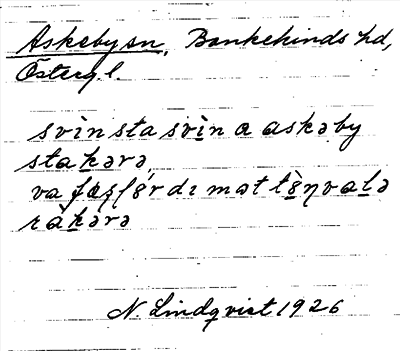 Askeby sn, Bankekinds hd,
Östergl.
svìnsta svìn a askəby
stakərə
va fæʂʃø̀rdɪ mət tèŋvalə
ràkərə
N. Lindqvist 1926